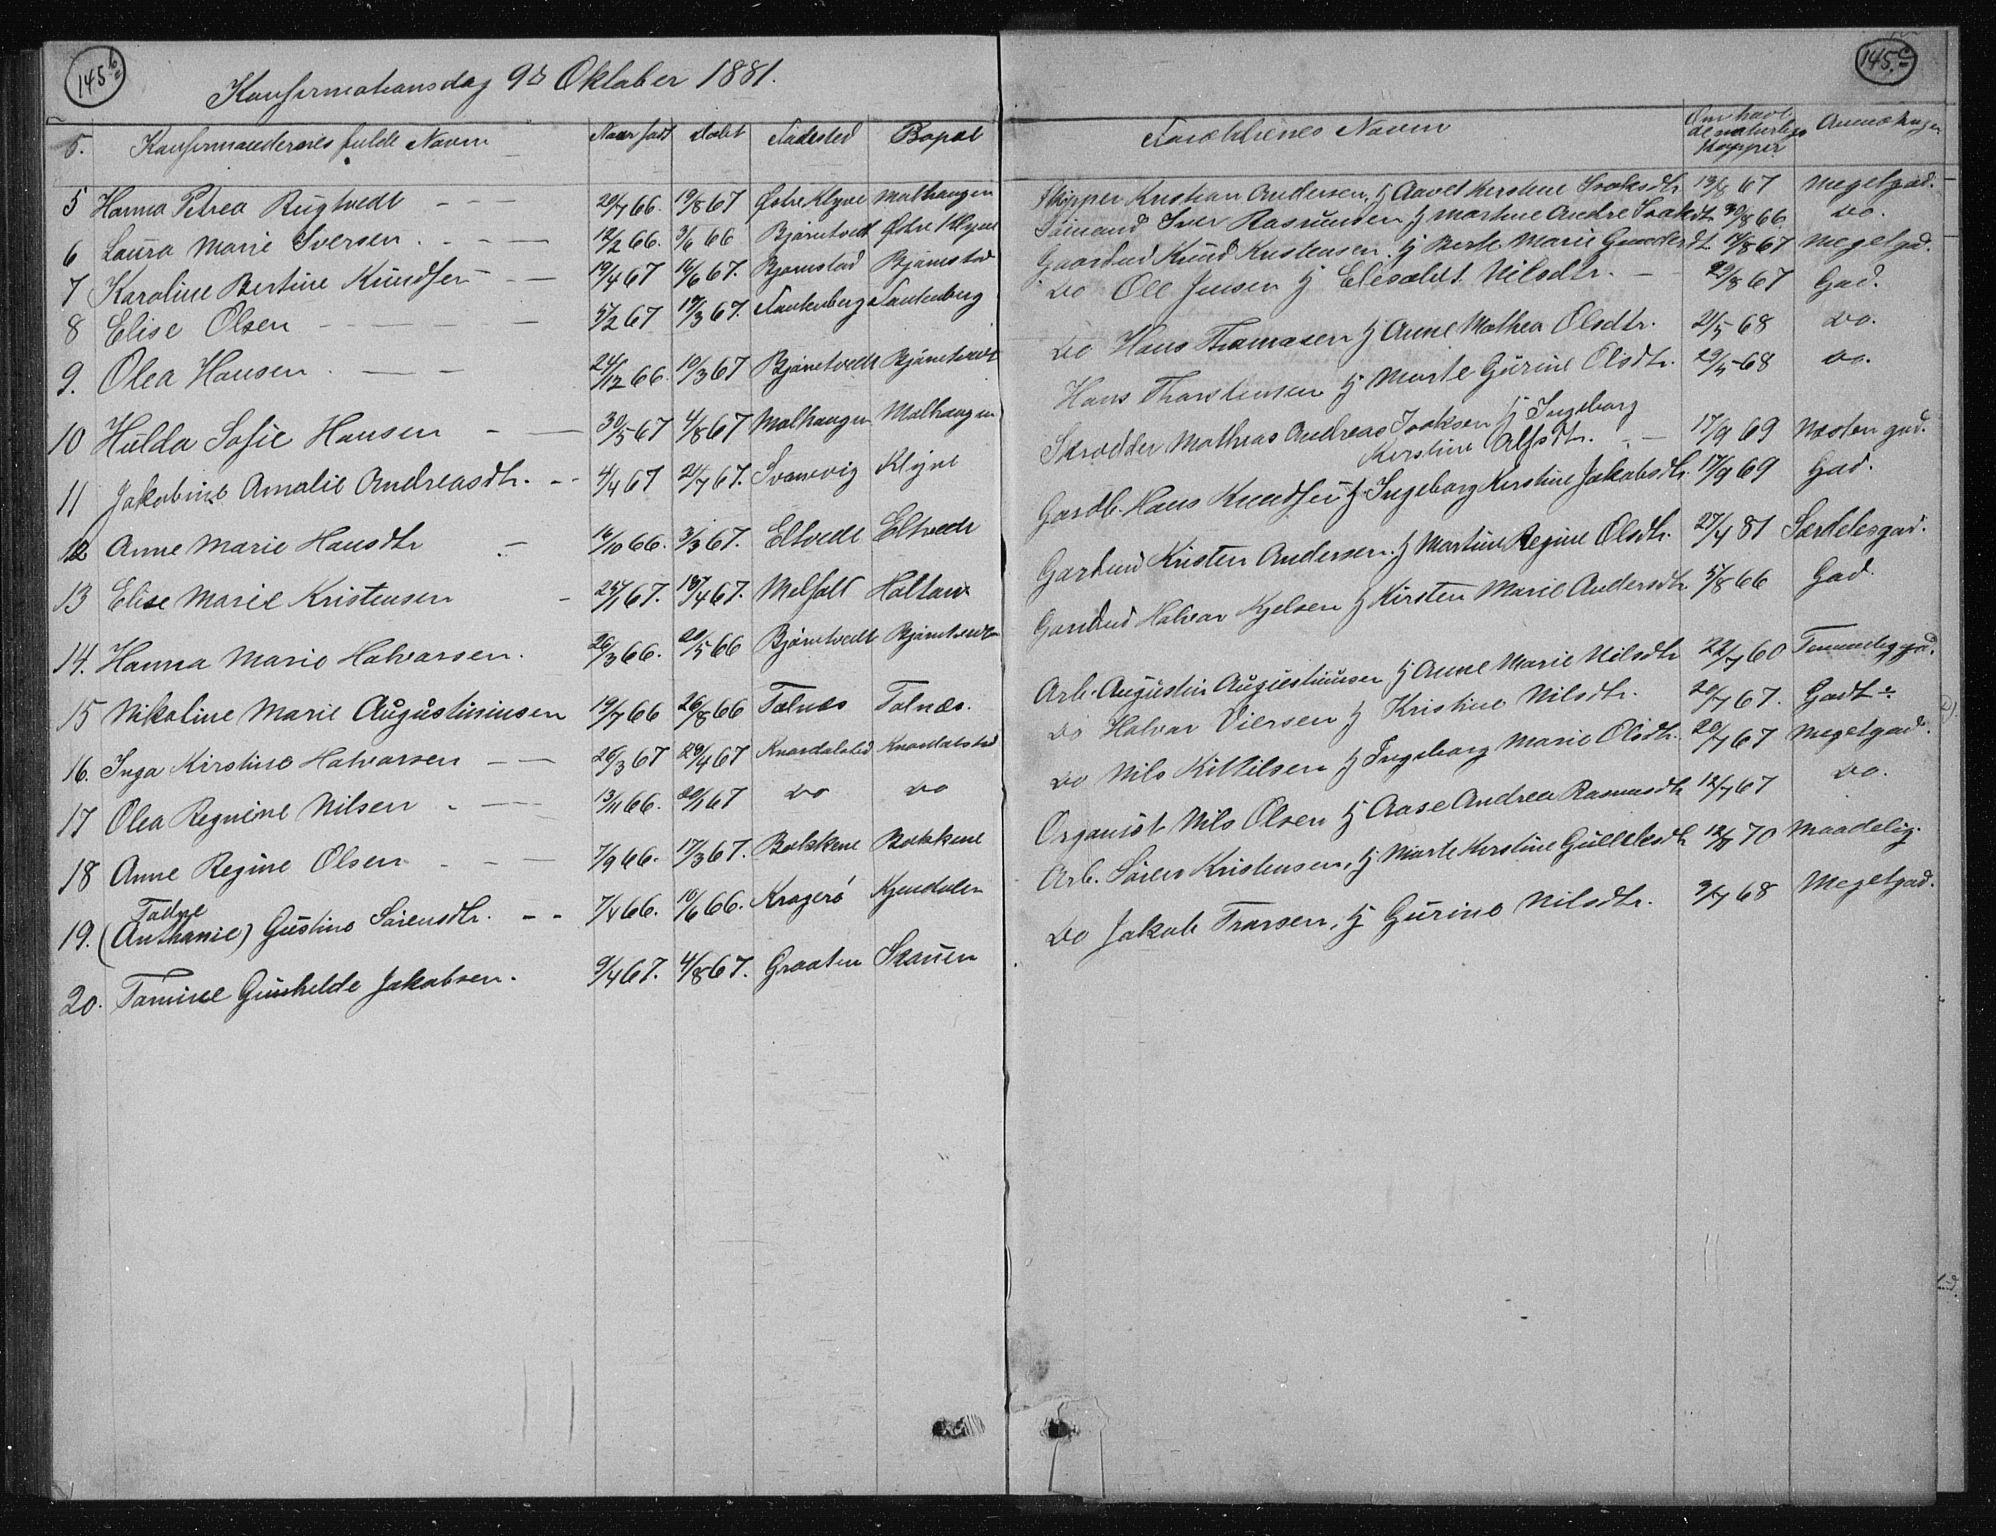 145 b
Konfirmationsdag 9de Oktober 1881.
5. Konfirmandernes fulde Navn Naar født Døbt Fødested Bopæl
5 Hanna Petrea Rugtvedt 20/7 66. 19/8 67 Østre Klyve Molhaugen
6 Laura Marie Iversen. 12/2 66. 3/6 66 Bjørntvedt Østre Klyve
7 Karoline Bertine Knudsen 19/4 67 10/6 67. Bjørnstad Bjørnstad
8 Elise Olsen 5/2 67 17/3 67.
9. Olea Hansen. 24/12 66. 10/3 67 Bjørntvedt Bjørntvedt
10 Hulda Sofie Hansen 30/5 67 4/8 67 Molhaugen Molhaugen
11 Jakobine Amalie Andreasdtr. 4/4 67 21/7 67. Svanevig Klyve
12 Anne Marie Hansdtr 16/10 66. 3/3 67. Eltvedt Eltvedt
13 Elise Marie Kristensen 25/1 67. 4 67. Holtan
14. Hanna Marie Halvorsen. 26/3 66. 20/5 66 Bjørntvedt
15 Nikoline Marie Augustiniusen 19/7 66 26/8 66 Tolnæs Tolnæs.
16. Inga Kirstine Halvorsen 26/3 67 28/4 67 Knardalstrd Knardalstrd
17 Olea Regnine Nilsen 13/11 66. 20/1 67 do do
18 Anne Regine Olsen 7/9 66. 17/3 67. Bakkene Bakkene
Tadne
19. (Anthanie) Gustine Sørensdtr. 7/4 66. 10/6 66. Kragerø Kjendalen
20. Tomine Gunhilde Jakobsen. 9/4 67. 4/8 67. Graaten Skauen
145. c
Forældrenes Navn Om havt de naturlige Kopper Anmærkninger
Skipper Kristian Andersen, & Kirstine Isaksdtr 13/8 67 Megetgod.
Sømand Iver Rasmussen & Martine Andre Isaksdtr 30/8 66. do.
Gaardmd Knud Kristensen. & Berte Marie Gundersdt. 8 67 Megetgd.
do Ole Jensen & Elisabet Nilsdtr. 29/8 67 God.
do Hans Thomasen & Anne Mathea Olsdtr. 2/5 68 do.
Hans Thorstensen & Marte Gurine Olsdtr. 29/5 68 do.
Skrædder Mathias Andreas Isaksen & Ingeborg
Kirstine Alfsdtr. 17/9 69 Næsten god.
Gardb. Hans Knudsen & Ingeborg Kirstine Jakobsdtr. 17/9 69 God.
Gardmd Kristen Andersen. & Martine Regine Olsdtr. 27/4 81 Særdelesgod.
Gardmd Halvor Kjelsen & Kirsten Marie Andersdtr 5/8 66 God.
Arb. Augustin Augustiniusen & Anne Marie Nilsdtr 22/7 60 Temmeliggod.
do Halvor Viersen & Kristine Nilsdtr. 20/7 67. Godt
do Nils Kittilsen & Ingeborg Marie Olsdtr. 20/7 67 Megetgod.
Organist Nils Olsen & Aase Andrea Rasmusdtr 12/7 67 do.
Arb. Søren Kristensen, & Marte Kirstine Gulleksdtr 70 Maadelig.
do Jakob Frorsen, & Gurine Nilsdtr. 3/7 68 Megetgod.